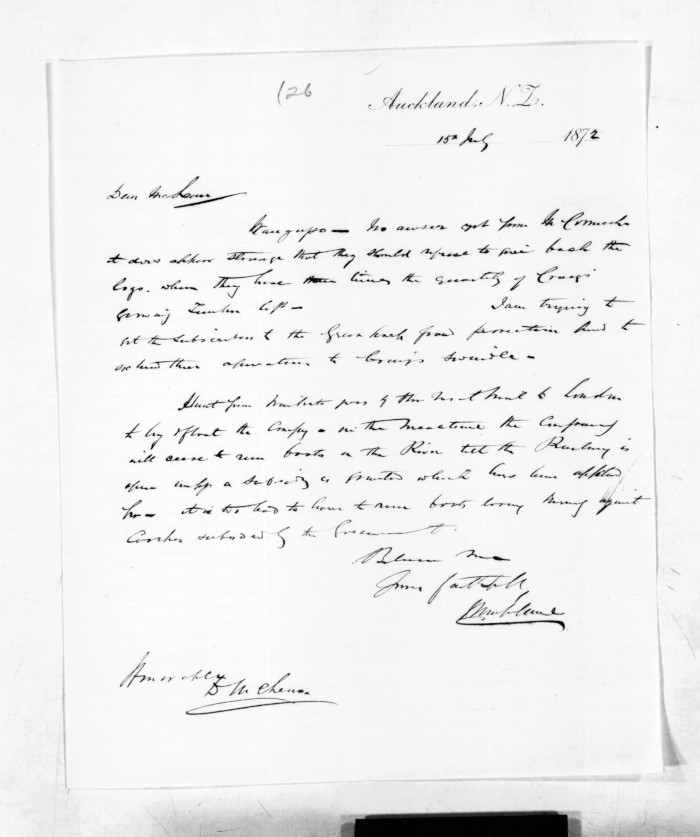 126
Auckland, N.Z.
15th July 1872
Dear McLean
No answer yet from McCormick
it does appear strange that they should refuse to give back the
logs. when they have three times the quantity of Craig's
growing Timber left - I am trying to
get the subscribers to the from and to
extend their operations to Craig's swindle -
Hunt from goes by the next mail to London
to the Compy - in the meantime the Company
will cease to run boats on the River till the Railway is
open unless a subsidy is granted which has been applied
for - it is too bad to have to run boats losing money against
Coaches subsidized by the Government.
Believe me
Yours faithfully
Honorable
D McLean